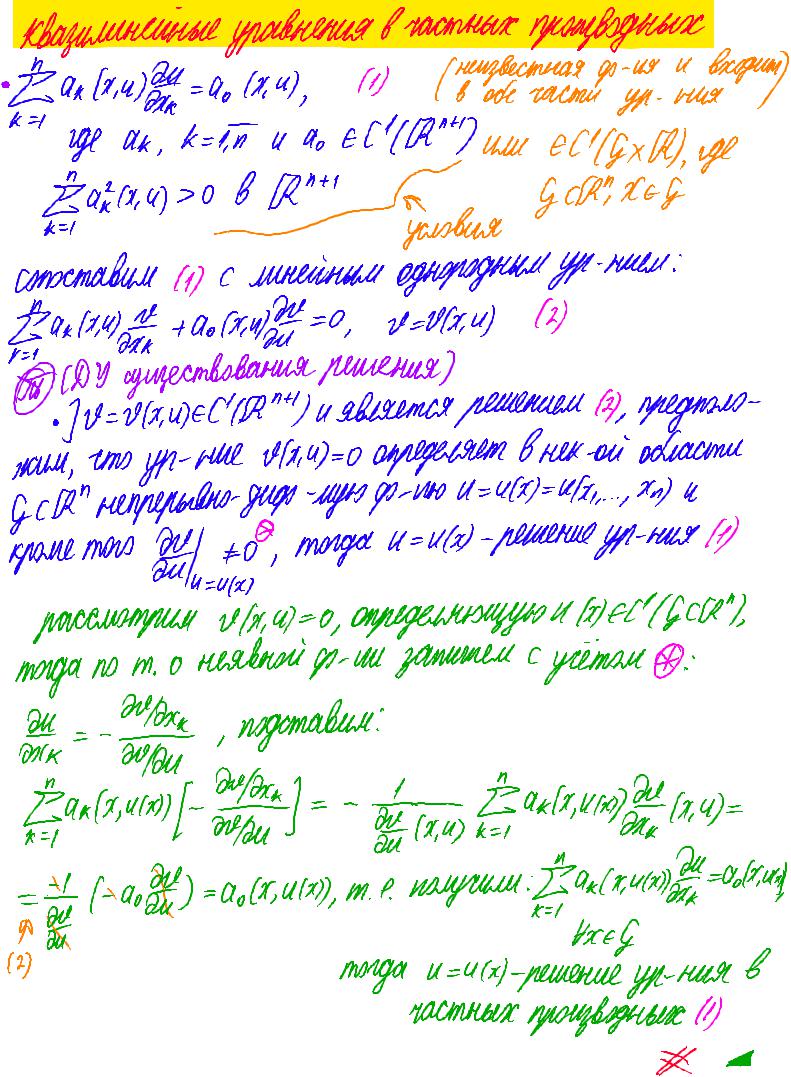 квазилинейные уравнения в частных производных
• $\sum_{k=1}^{n} a_k(x,u)\frac{\partial u}{\partial x_k} = a_0(x,u)$, (1) (неизвестная ф-ия u входит в обе части ур-ния)
где $a_k$, $k=\overline{1,n}$ и $a_0 \in C^1(\mathbb{R}^{n+1})$ или $\in C^1(G \times \mathbb{R})$, где
$\sum_{k=1}^{n} a_k^2(x,u) > 0$ в $\mathbb{R}^{n+1}$ $G \subset \mathbb{R}^n$, $x \in G$
условия
сопоставим (1) с линейным однородным ур-нием:
$\sum_{k=1}^{n} a_k(x,u)\frac{v}{\partial x_k} + a_0(x,u)\frac{\partial v}{\partial u} = 0$, $v = v(x,u)$ (2)
(ДУ существования решения)
• ] $v = v(x,u) \in C^1(\mathbb{R}^{n+1})$ и является решением (2), предполо-
жим, что ур-ние $v(x,u)=0$ определяет в нек-ой области
$G \subset \mathbb{R}^n$ непрерывно-диф-мую ф-ию $u = u(x) = u(x_1,...,x_n)$ и
кроме того $\frac{\partial v}{\partial u}\Big|_{u=u(x)} \neq 0$ ⊛, тогда $u = u(x)$ - решение ур-ния (1)
рассмотрим $v(x,u)=0$, определяющую $u(x) \in C^1(G \subset \mathbb{R}^n)$,
тогда по т. о неявной ф-ии запишем с учётом ⊛:
$\frac{\partial u}{\partial x_k} = -\frac{\partial v/\partial x_k}{\partial v/\partial u}$, подставим:
$\sum_{k=1}^{n} a_k(x,u(x))\left[-\frac{\partial v/\partial x_k}{\partial v/\partial u}\right] = -\frac{1}{\frac{\partial v}{\partial u}(x,u)} \sum_{k=1}^{n} a_k(x,u(x))\frac{\partial v}{\partial x_k}(x,u) =$
$= \frac{-1}{\frac{\partial v}{\partial u}}\left(-a_0\frac{\partial v}{\partial u}\right) = a_0(x,u(x))$, т.е. получили: $\sum_{k=1}^{n} a_k(x,u(x))\frac{\partial u}{\partial x_k} = a_0(x,u(x))$,
(2) $\forall x \in G$
тогда $u = u(x)$ - решение ур-ния в
частных производных (1)